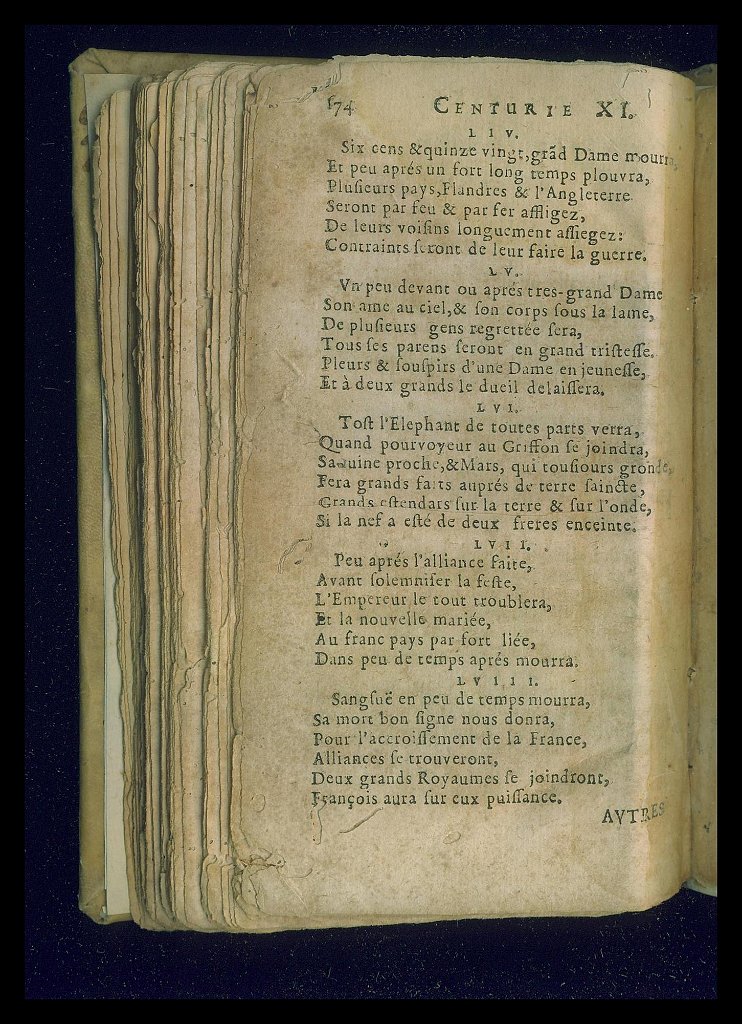 174 CENTURIE XI.
LIV.
Six cens &quinze vingt,grãd Dame mourra,
Et peu aprés un fort long temps plouvra,
Pluſieurs pays,Flandres & l'Angleterre
Seront par feu & par fer affligez,
De leurs voiſins longuement aſſiegez:
Contraints ſeront de leur faire la guerre.
LV.
Vn peu devant ou aprés tres-grand Dame
Son ame au ciel,& ſon corps ſous la lame,
De pluſieurs gens regrettée ſera,
Tous ſes parens ſeront en grand triſteſſe.
Pleurs & ſouſpirs d'une Dame en jeuneſſe,
Et à deux grands le dueil delaiſſera.
LVI.
Toſt l'Elephant de toutes parts verra,
Quand pourvoyeur au Griffon ſe joindra,
Sa ruine proche,&Mars, qui touſiours gronde,
Fera grands faits auprés de terre ſaincte,
Grands eſtendars ſur la terre & ſur l'onde,
Si la nef a eſté de deux freres enceinte.
LVII.
Peu aprés l'alliance faite,
Avant ſolemniſer la feſte,
L'Empereur le tout troublera,
Et la nouvelle mariée,
Au franc pays par fort liée,
Dans peu de temps aprés mourra.
LVIII.
Sangſuë en peu de temps mourra,
Sa mort bon ſigne nous donra,
Pour l'accroiſſement de la France,
Alliances ſe trouveront,
Deux grands Royaumes ſe joindront,
François aura ſur eux puiſſance.
AVTRES